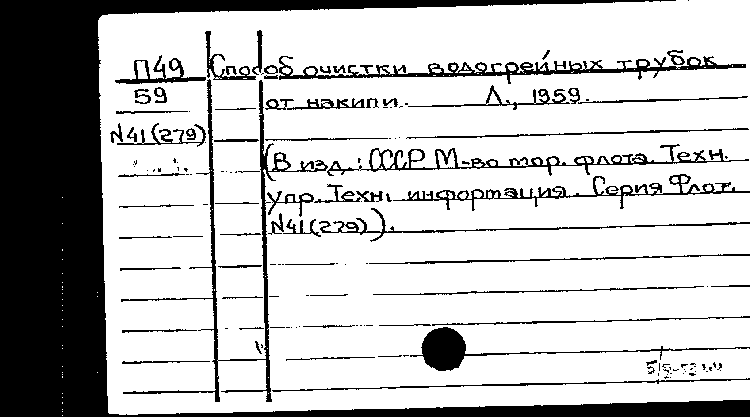 П49 Способ очистки водогрейных трубок
59 от накипи. Л., 1959.
N41(279)
(В изд.: СССР М-во мор. флота. Техн.
упр. Техн. информация. Серия Флот.
N41(279)).